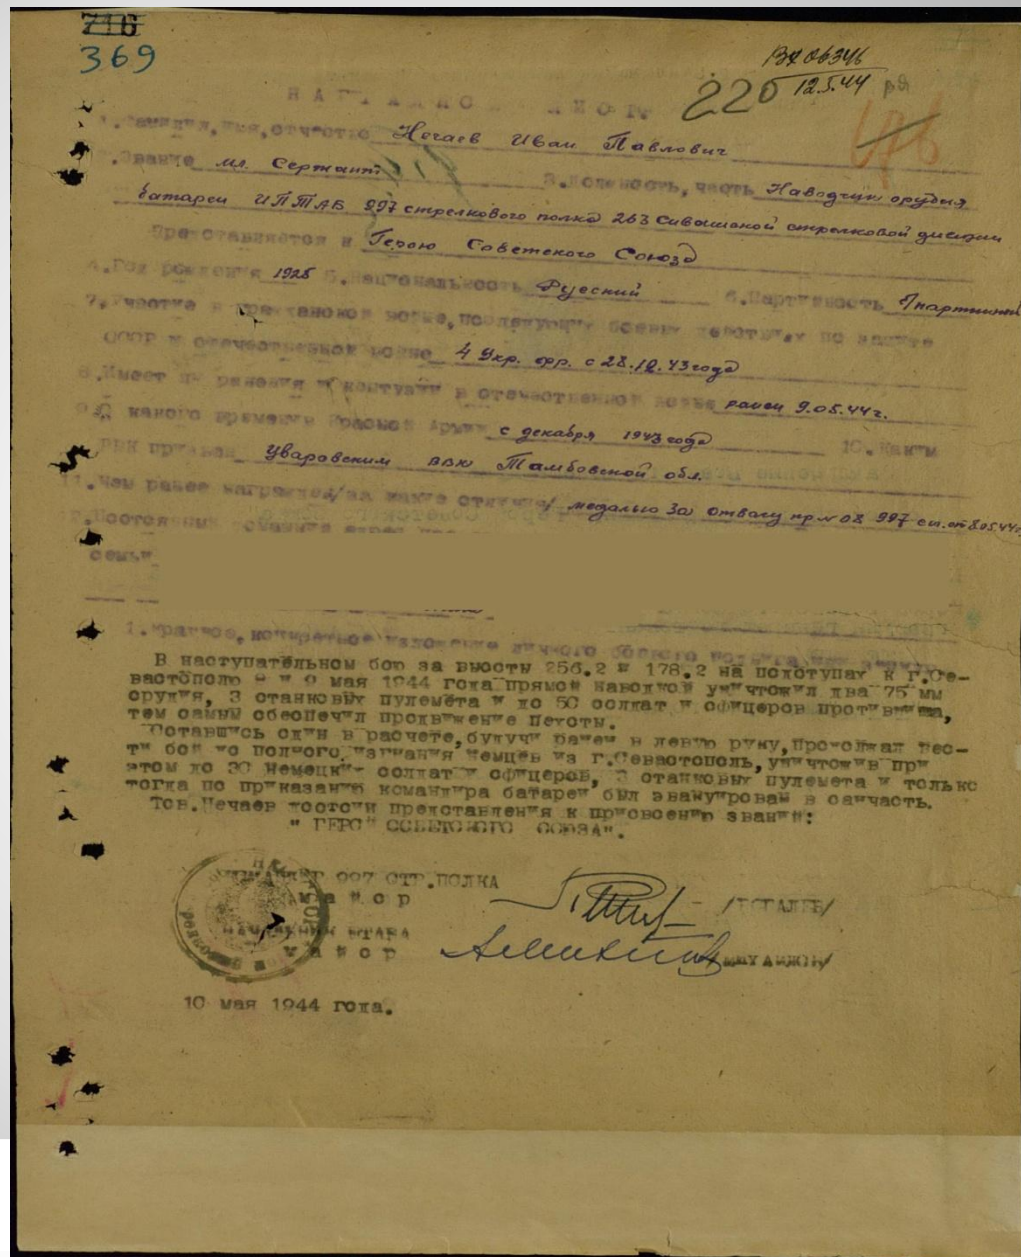 716
369
ВХ 06346
12.5.44
220
НАГРАДНОЙ ЛИСТ
1.Фамилия,имя,отчество Нечаев Иван Павлович
.Звание мл. Сержант 3.Должность,часть Наводчик орудия
батареи ИПТАБ 997 стрелкового полка 263 Сивашской стрелковой дивизии
Представляется к Герою Советского Союза
4.Год рождения 1925 5.Национальность Русский 6.Партийность
7.Участие в гражданской войне,последующих боевых действиях по защите
СССР и отечественной войне 4 Укр. фр. с 28.12.43 года
8.Имеет ли ранения и контузии в отечественной войне ранен 9.05.44г.
9.С какого времени в Красной Армии с декабря 1943 года 10.Каким
РВК призван Уваровским РВК Тамбовской обл.
11.Чем ранее награжден/за какие отличия/ медалью За отвагу пр № 08 997 сп. от 8.05.44г.
12.Постоянный домашний адрес
семьи
1.Краткое,конкретное изложение личного боевого подвига или заслуг
В наступательном бою за высоты 256.2 и 178.2 на подступах к г.Се-
вастополю 8 и 9 мая 1944 года прямой наводкой уничтожил два 75 мм
орудия, 3 станковых пулемета и до 50 солдат и офицеров противника,
тем самым обеспечил продвижение пехоты.
Оставшись один в расчете,будучи ранен в левую руку,продолжал вес-
ти бой до полного изгнания немцев из г.Севастополь,уничтожив при
этом до 30 немецких солдат и офицеров, 3 станковых пулемета и только
тогда по приказанию командира батареи был эвакуирован в санчасть.
Тов.Нечаев достоин представления к присвоению званий:
" ГЕРОЙ СОВЕТСКОГО СОЮЗА".
КОМАНДИР 997 СТР.ПОЛКА
майор
НАЧАЛЬНИК ШТАБА
майор
10 мая 1944 года.